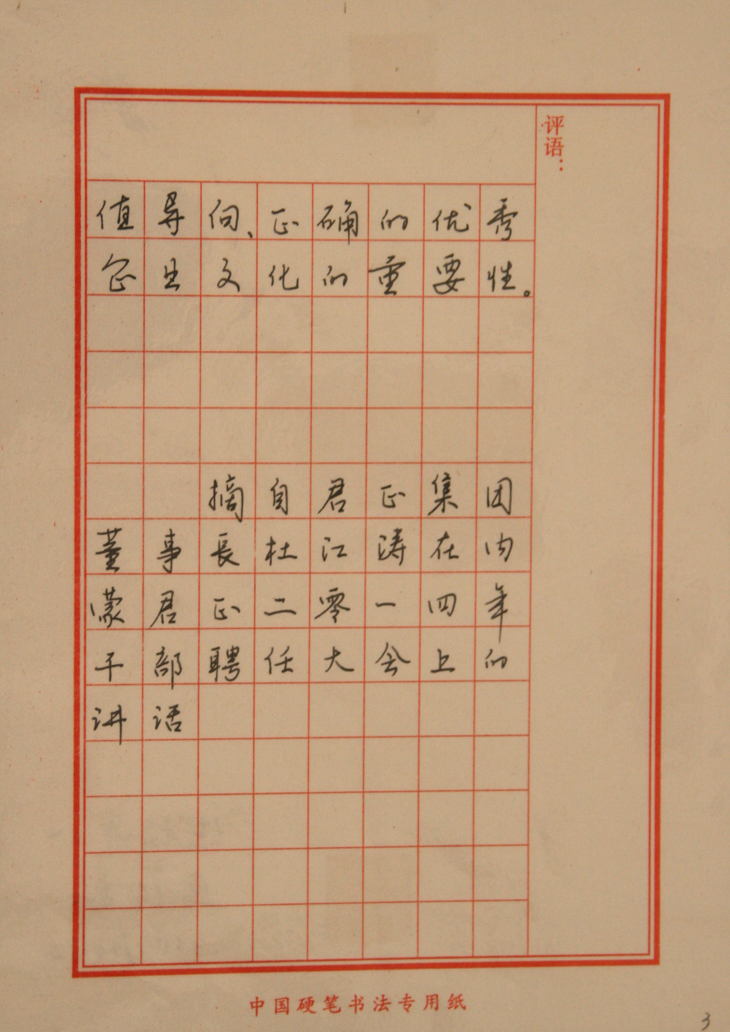 评语：
值导向、正确的优秀
企旦文化的重要性。
摘自君正集团
董事长杜江涛在内
蒙君正二零一四年
干部聘任大会上的
讲话
中国硬笔书法专用纸
3